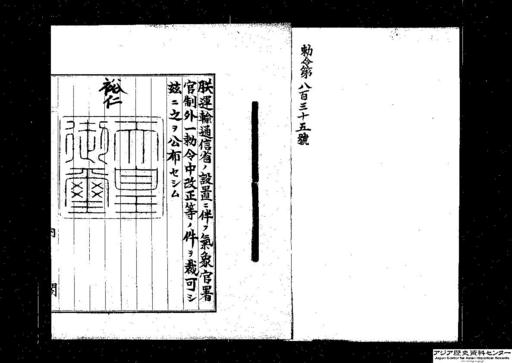 勅令第八百三十五號
朕運輸通信省ノ設置ニ伴フ氣象官署
官制外一勅令中改正等ノ件ヲ裁可シ
玆ニ之ヲ公布セシム
裕仁
天皇
御璽
内
閣
アジア歴史資料センター
Japan Center for Asian Historical Records